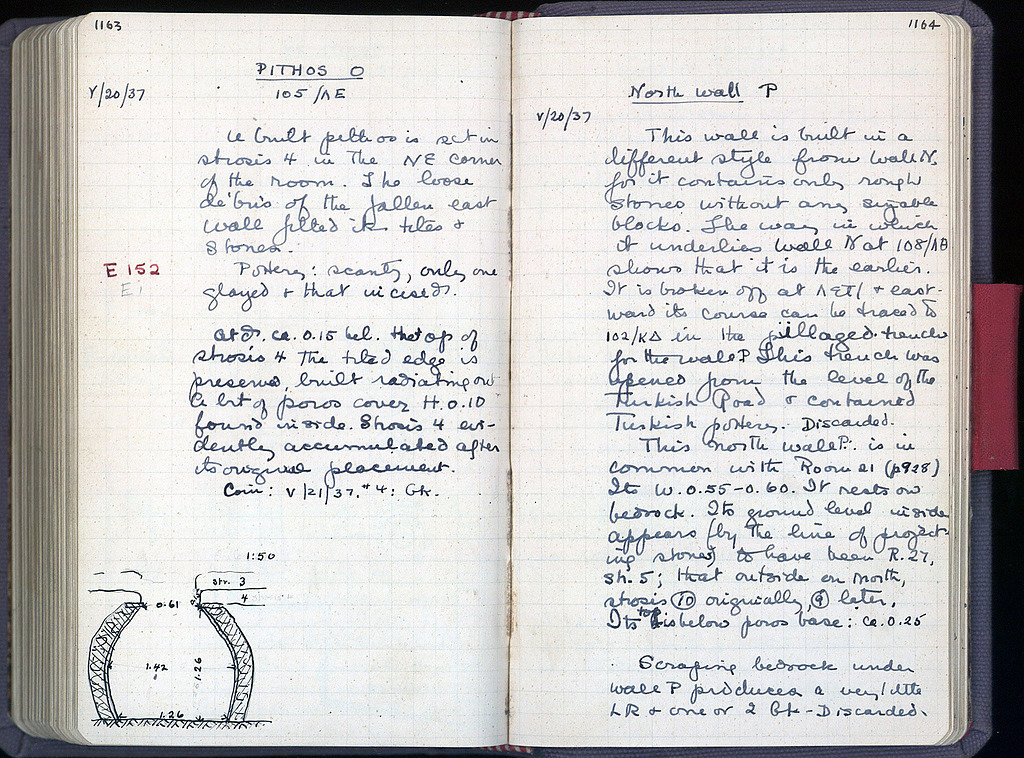 1163
PITHOS O
V/20/37
105/ΛΕ
A built pithos is set in
strosis 4 in the NE corner
of the room. The loose
débris of the fallen east
wall filled it: tiles &
stones.
E 152
E
Pottery: scanty, only one
glazed & that incised.
At d. ca. 0.15 bel. the top of
strosis 4 the tiled edge is
preserved, built radiating out
A bit of poros cover H. 0.10
found inside. Strosis 4 evi-
dently accumulated after
its original placement.
Coin: V/21/37. #4: Gk.
1:50
str. 3
4
0.61
1.42
1.26
1.26
1164
North wall P
V/20/37
This wall is built in a
different style from wall N,
for it contains only rough
stones without any sizable
blocks. The way in which
it underlies wall N at 108/ΛΒ
shows that it is the earlier.
It is broken off at & east-
ward its course can be traced to
102/ΚΔ in the pillaged trench
for the wall P. This trench was
opened from the level of the
Turkish Road & contained
Turkish pottery. Discarded.
This north wall P. is in
common with Room 21 (p928)
Its W. 0.55-0.60. It rests on
bedrock. Its ground level inside
appears (by the line of project-
ing stones) to have been R.27,
str. 5; that outside on north,
strosis 10 originally, 9 later.
Its top is below poros base: ca. 0.25
Scraping bedrock under
wall P produces a very little
LR & one or 2 Gk - Discarded.